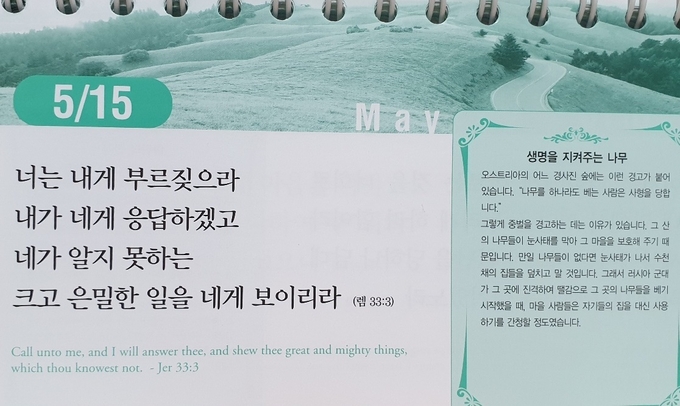 5/15
May
너는 내게 부르짖으라
내가 네게 응답하겠고
네가 알지 못하는
크고 은밀한 일을 네게 보이리라 (렘 33:3)
Call unto me, and I will answer thee, and shew thee great and mighty things,
which thou knowest not. - Jer 33:3
생명을 지켜주는 나무
오스트리아의 어느 경사진 숲에는 이런 경고가 붙어
있습니다. "나무를 하나라도 베는 사람은 사형을 당합
니다."
그렇게 중벌을 경고하는 데는 이유가 있습니다. 그 산
의 나무들이 눈사태를 막아 그 마을을 보호해 주기 때
문입니다. 만일 나무들이 없다면 눈사태가 나서 수천
채의 집들을 덮치고 말 것입니다. 그래서 러시아 군대
가 그 곳에 진격하여 땔감으로 그 곳의 나무들을 베기
시작했을 때, 마을 사람들은 자기들의 집을 대신 사용
하기를 간청할 정도였습니다.